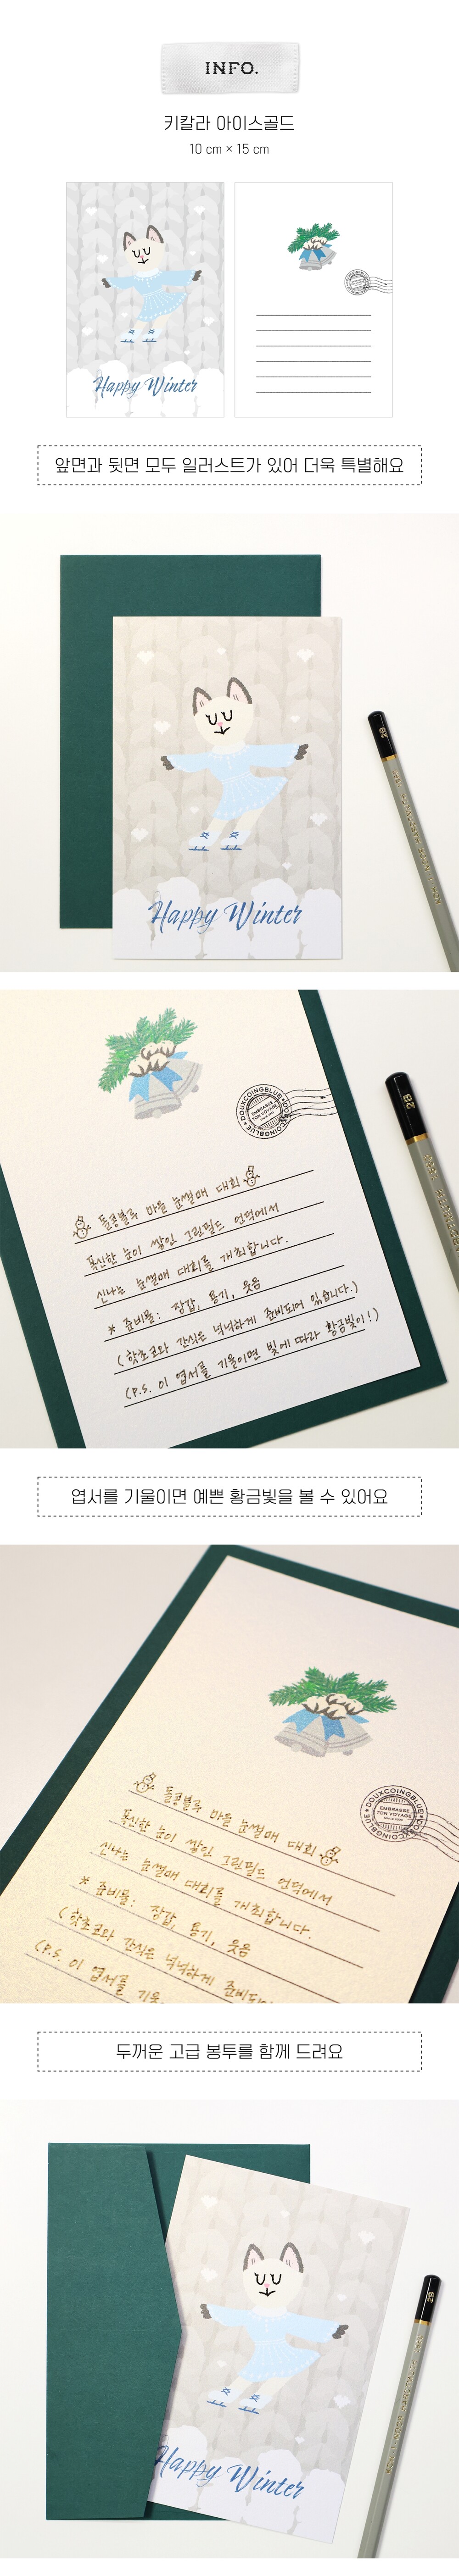 INFO.
키칼라 아이스골드
10 cm × 15 cm
Happy Winter
앞면과 뒷면 모두 일러스트가 있어 더욱 특별해요
2B
Happy Winter
DOUXCOINGBLUE
EMBRASSE
TON VOYAGE
DOUXCOINGBLUE
2B
마을 눈썰매 대회
폭신한 눈이 쌓인 그린필드 언덕에서
신나는 눈썰매 대회를 개최합니다.
* 준비물: 장갑, 용기, 웃음
(핫초코와 간식은 넉넉하게 준비되어 있습니다.)
(P.S. 이 엽서를 기울이면 빛에 따라 황금빛이!)
엽서를 기울이면 예쁜 황금빛을 볼 수 있어요
DOUXCOINGBLUE
EMBRASSE
TON VOYAGE
DOUXCOINGBLUE
마을 눈썰매 대회
폭신한 눈이 쌓인 그린필드 언덕에서
신나는 눈썰매 대회를 개최합니다.
* 준비물: 장갑, 용기, 웃음
(핫초코와 간식은 넉넉하게
(P.S. 이 엽서를
두꺼운 고급 봉투를 함께 드려요
2B
Happy Winter